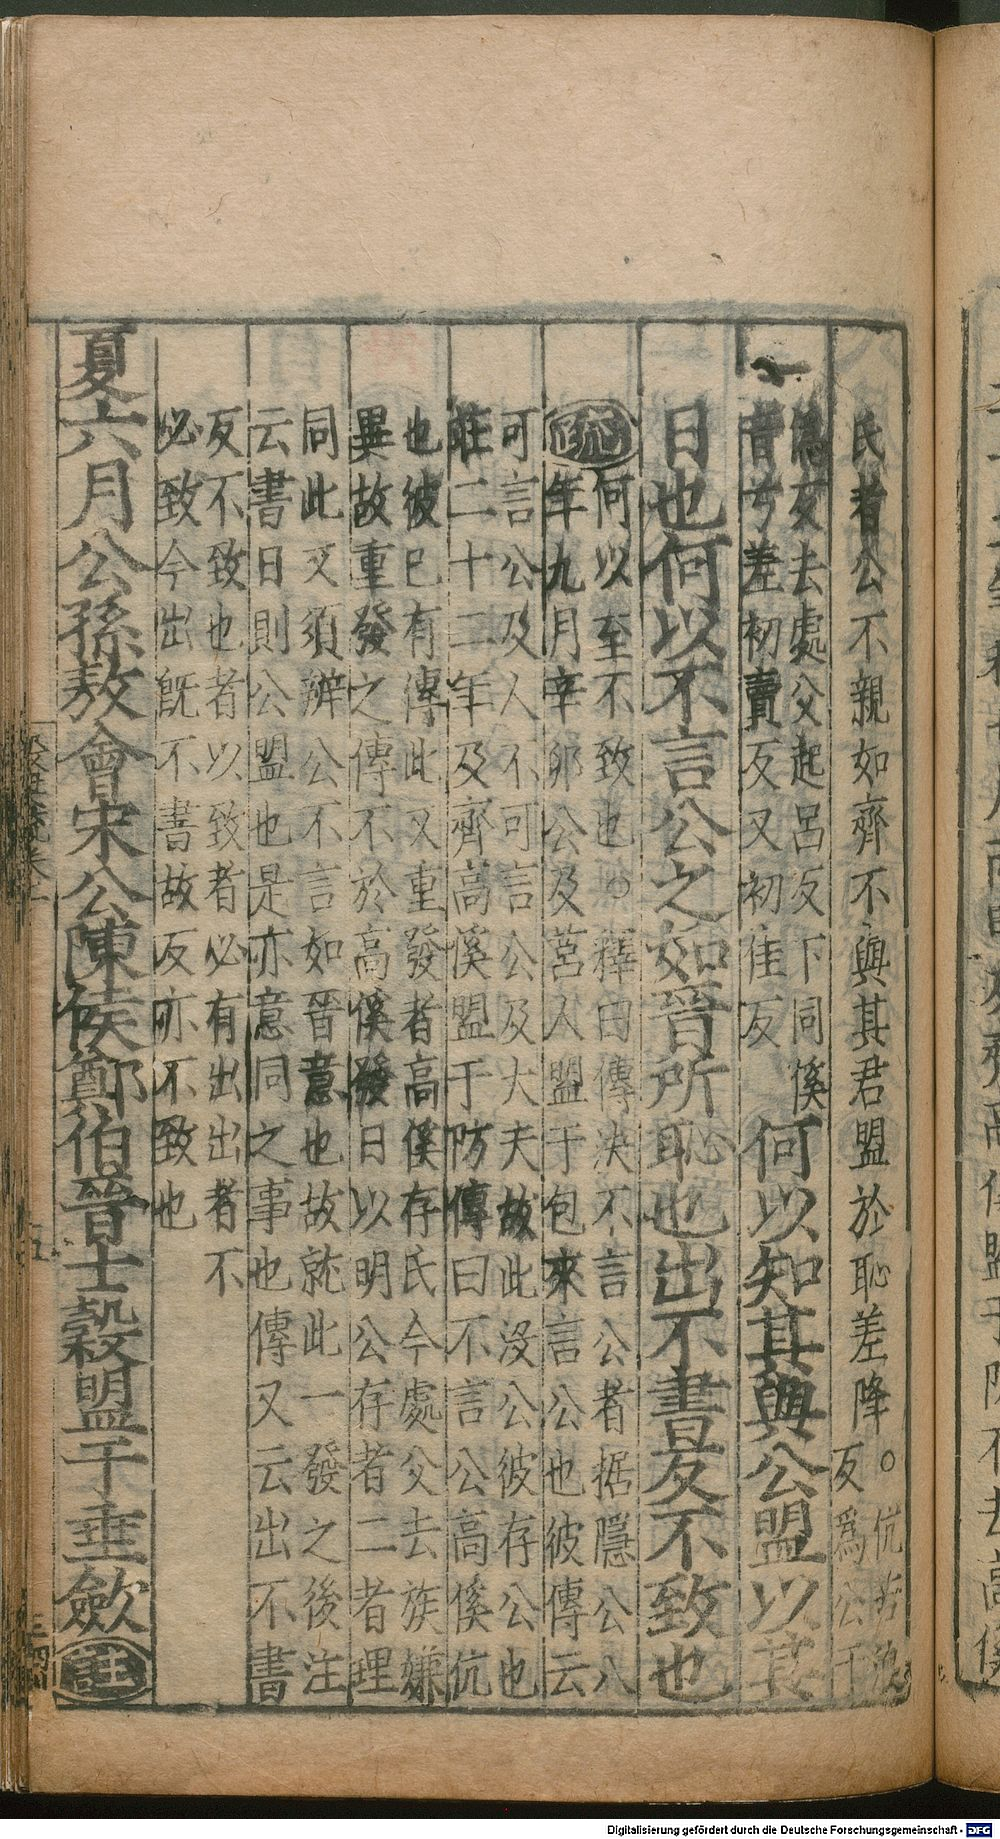 氏者公不親如齊不與其君盟於恥差降。伉苦浪
反爲公于
僞反去處父起呂反下同傒
音兮差初賣反又初佳反
何以知其與公盟以其
日也何以不言公之如晉所恥也出不書反不致也
疏何以至不致也。釋曰傳決不言公者据隱公八
年九月辛卯公及莒人盟于包來言公也彼傳云
可言公及人不可言公及大夫故此沒公彼存公也
莊二十二年及齊高傒盟于防傳曰不言公高傒伉
也彼已有傳此又重發者高傒存氏今處父去族嫌
異故重發之傳不於高傒發日以明公存者二者理
同此又須辨公不言如晉意也故就此一發之後注
云書日則公盟也是亦意同之事也傳又云出不書
反不致也者以致者必有出出者不
必致今出旣不書故反亦不致也
夏六月公孫敖會宋公陳侯鄭伯晉士縠盟于垂歛註
Digitalisierung gefördert durch die Deutsche Forschungsgemeinschaft - DFG